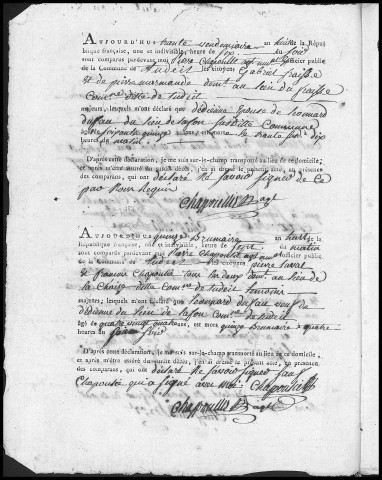 AUJOURD'HUI trente vendemiaire an huit de la Républi
que française, une et indivisible, heure de six du soir
sont comparus pardevant moi Pierre Chapoulle agt mpal officier public
de la Commune de Tudeil les citoyens Gabriel fraisse
et de pierre marmande demt au lieu du fraisse
Comne dite de tudeil
majeurs, lesquels m'ont déclaré que dédiéne epouse de leonard
dufau du lieu de lafon susditte Commune
âgée soixante quinze le trente dix
heures du matin.
D'après cette déclaration, je me suis sur-le-champ transporté au lieu de ce domicile;
et après m'être assuré dudit décès, j'en ai dressé le présent acte, en présence
des comparans, qui ont déclaré ne savoir signer de ce
par nous requis
Chapoulle agt
AUJOURD'HUI quinze Brumaire an huit de la
République française, une et indivisible, heure de sept du matin
sont comparus pardevant moi Pierre Chapoulle agt mpal officier public
de la Commune de tudeil les citoyens pierre laval
et francois Chapoulie tous les deux demt au lieu de
la Chaize ditte Comne de tudeil temoins
majeurs, lesquels m'ont déclaré que leonard dufau veuf de
dédienne du lieu de lafon Comne de tudeil
âgé de quatre vingt quatre ans, est mort quinze Brumaire à quatre
heures du soir
D'après cette déclaration, je me suis sur-le-champ transporté au lieu de ce domicile;
et après m'être assuré dudit décès, j'en ai dressé le présent acte, en présence
des comparans, qui ont déclaré ne savoir signer sauf
Chapoulie qui a signé avec moi. Chapoulie
Chapoulle agt